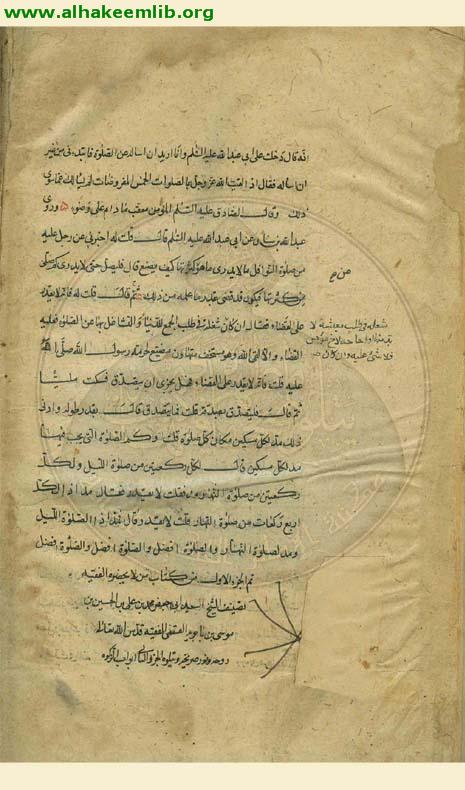 www.alhakeemlib.org
انه قال دخلت على ابى عبد الله عليه السلم وانا اريد ان اساله عن الصلوة فابتدء نى من غير
ان اساله فقال اذا لقيت الله عز وجل بالصلوات الخمس المفروضات لم يسالك عما سوى
ذلك وقال الصادق عليه السلم المؤمن معقب ما دام على وضوء وروى
عبد الله بن سنان عن ابى عبد الله عليه السلم قال قلت له اخبرنى عن رجل عليه
من صلوة النوافل ما لا يدرى ما هو من كثرتها كيف يصنع قال فليصل حتى لا يدرى كم صلى
من كثرتها فيكون قد قضى بقدر ما علمه من ذلك ثم قال قلت له فانه لا يقدر
على القضاء فقال ان كان شغله فى طلب الجمع للدنيا والتشاغل بها عن الصلوة فعليه
القضاء والا لقى الله وهو مستخف متهاون مضيع لحرمة رسول الله صلى الله
عليه قلت فانه لا يقدر على القضاء فهل يجزى ان يتصدق فسكت مليا
ثم قال فليتصدق بصدقة قلت فما يتصدق قال بقدر طوله وادنى
ذلك مد لكل مسكين مكان كل صلوة قلت وكم الصلوة التى يجب فيها
مد لكل مسكين قال لكل ركعتين من صلوة الليل ولكل
ركعتين من صلوة النهار فقلت لا يقدر فقال مد اذا لكل
اربع ركعات من صلوة النهار قلت لا يقدر قال فمد اذا لصلوة الليل
ومد لصلوة النهار والصلوة افضل والصلوة افضل والصلوة افضل
تم الجزء الاول من كتاب من لا يحضره الفقيه
تصنيف الشيخ السعيد ابى جعفر محمد بن على بن الحسين بن
موسى بن بابويه القمى الفقيه قدس الله تعالى
روحه ونور ضريحه ويتلوه الجزء الثانى ابواب الزكوة
شغله فى طلب معيشة لا
بد منها او حاجة لاخ مؤمن
فلا شئ عليه وان كان